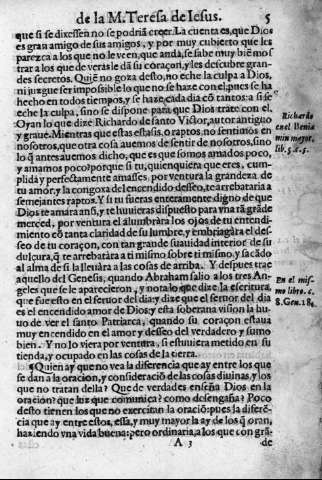 de la M. Teresa de Iesus. 5
que si se dixessen no se podriã creer. La cuenta es, que Dios
es gran amigo de sus amigos, y por muy cubierto que les
parezca a los que no le veen, que anda, se sabe muy biẽ mos
trar a los que de veras le dã su coraçon, y les descubre gran-
des secretos. Quiẽ no goza desto, no eche la culpa a Dios,
ni juzgue ser impossible lo que no se haze con el, pues se ha
hecho en todos tiempos, y se haze cada dia cõ tantos: a si se
eche la culpa, sino se dispone para que Dios trate con el.
Oyan lo que dize Ricardo de santo Victor, autor antiguo
y graue. Mientras que estas estasis, o raptos, no sentimos en
nosotros, que otra cosa auemos de sentir de nosotros, sino
lo q̃ antes auemos dicho, que es que somos amados poco,
y amamos poco? porque si tu, quienquiera que eres, cum-
plida y perfectamente amasses, por ventura la grandeza de
tu amor, y la congoxa del encendido desseo, te arrebataria a
semejantes raptos. Y si tu fueras enteramente digno de que
Dios te amara ansi, y te huuieras dispuesto para vna tã grãde
merced, por ventura el alumbràra los ojos de tu entendi-
miento cõ tanta claridad de su lumbre, y embriagàra el des-
seo de tu coraçon, con tan grande suauidad interior de su
dulçura, q̃ te arrebatàra a ti mismo sobre ti mismo, y sacãdo
al alma de si la lleuàra a las cosas de arriba. Y despues trae
aquello del Genesis, quando Abraham salio a los tres An-
geles que se le aparecieron, y nota lo que dize la escritura,
que fue esto en el feruor del dia, y dize que el feruor del dia
es el encendido amor de Dios: y esta soberana vision la hu-
uo de ver el santo Patriarca, quando su coraçon estaua
muy encendido en el amor y desseo del verdadero y sumo
bien. Y no lo viera por ventura, si estuuiera metido en su
tienda, y ocupado en las cosas de la tierra.
¶ Quien ay que no vea la diferencia que ay entre los que
se dan a la oracion, y consideraciõ de las cosas diuinas, y los
que no tratan della? Que de verdades enseña Dios en la
oracion? que luz que comunica? como desengaña? Poco
desto tienen los que no exercitan la oraciõ: pues la diferẽ-
cia que ay entre estos, essa, y muy mayor la ay de los q̃ oran,
haziendo vna vida buena; pero ordinaria, a los que con grã-
A 3 de
Richardo
en el Benia
min mayor,
lib. 5. c. 5.
En el mis-
mo libro. c.
8. Gen. 18.